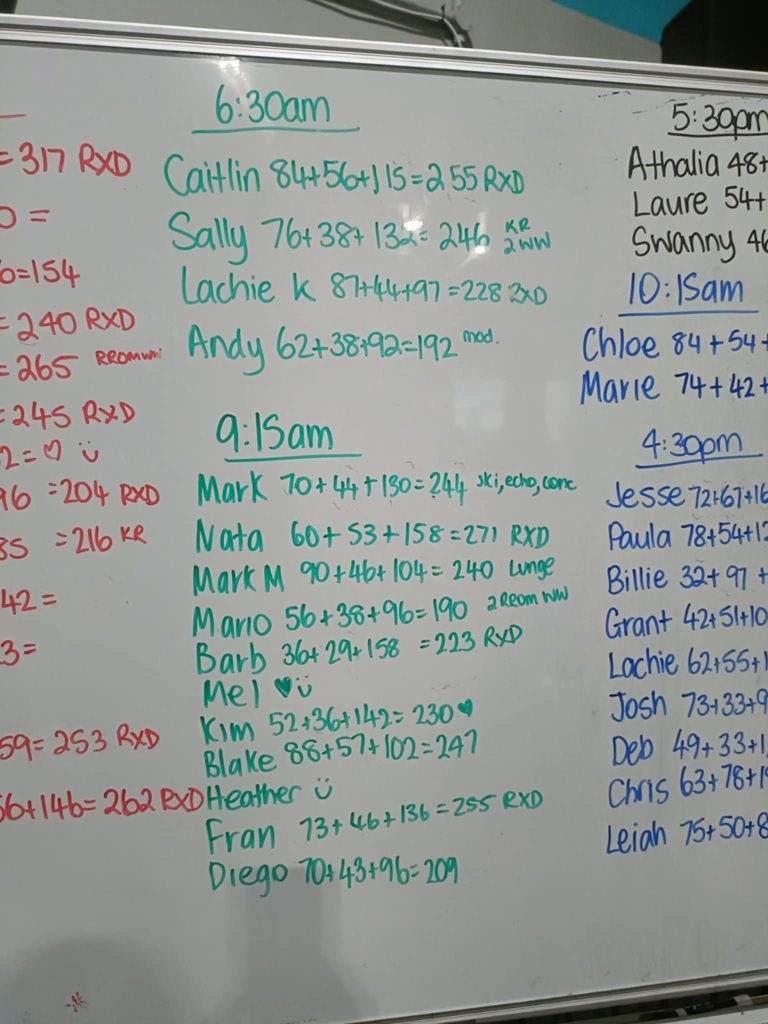 =317 RXD
0 =
6=154
=240 RXD
=265
=245 RXD
2=♡ ü
96 =204 RXD
85 =216 KR
42=
3=
59=253 RXD
56+146=262 RXD
6:30am
Caitlin 84+56+115=255 RXD
Sally 76+38+132=246 KR 2WW
Lachie K 87+44+97=228 RXD
Andy 62+38+92=192 mod.
9:15am
Mark 70+44+130=244 ski, echo, conc
Nata 60+53+158=271 RXD
Mark M 90+46+104=240 Lunge
Mario 56+38+96=190 2 RROM WW
Barb 36+29+158 =223 RXD
Mel ♥ü
Kim 52+36+142=230♥
Blake 88+57+102=247
Heather ü
Fran 73+46+136=255 RXD
Diego 70+43+96=209
5:30pm
Athalia 48+
Laure 54+
Swanny 46
10:15am
Chloe 84+54+
Marie 74+42+
4:30pm
Jesse 72+67+16
Paula 78+54+12
Billie 32+97+
Grant 42+51+10
Lachie 62+55+1
Josh 73+33+9
Deb 49+33+1
Chris 63+78+19
Leiah 75+50+8